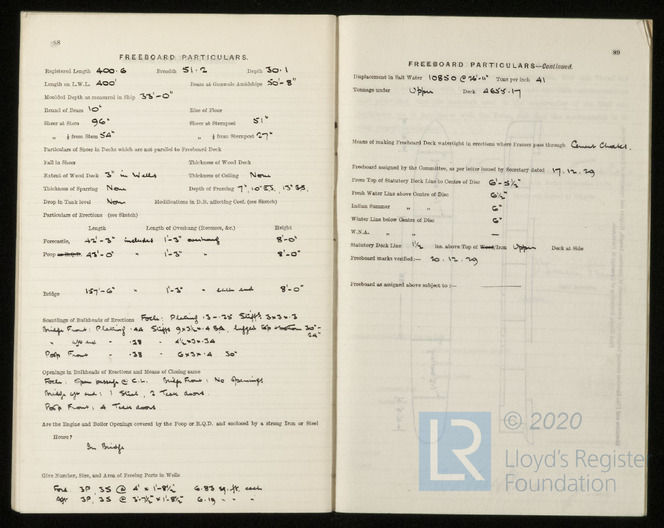 88
FREEBOARD PARTICULARS.
Registered Length 400·6 Breadth 51·2 Depth 30·1
Length on L.W.L. 400' Beam at Gunwale Amidships 50'-8"
Moulded Depth as measured in Ship 33'-0"
Round of Beam 10" Rise of Floor
Sheer at Stem 96" Sheer at Sternpost 51"
" ⅛ from Stem 54" " ⅛ from Sternpost 27"
Particulars of Sheer in Decks which are not parallel to Freeboard Deck
Fall in Sheer Thickness of Wood Deck
Extent of Wood Deck 3" in Wells Thickness of Ceiling None
Thickness of Sparring None Depth of Framing 7",
Drop in Tank level None Modifications in D.B. affecting Coef. (see Sketch)
Particulars of Erections (see Sketch)
Length Length of Overhang (Recesses, &c.) Height
Forecastle, 42'-3" includes 1'-3" overhang 8'-0"
Poop 43'-0" " 1'-3" " 8'-0"
Bridge 157'-6" " 1'-3" " each end 8'-0"
Scantlings of Bulkheads of Erections Focle: Plating ·3-·25 Stiffs 3x3x·3
Bridge Front: Plating ·44 Stiffs lugged top & bottom 30"-24"
" aft end - ·28 -
Poop Front - ·38 - 6x3x·4 30"
Openings in Bulkheads of Erections and Means of Closing same
Focle: Open passage @ C.L. Bridge Front: No Openings
Bridge aft end: 1 Steel, 2 Teak doors.
Poop Front: 4 Teak doors
Are the Engine and Boiler Openings covered by the Poop or R.Q.D. and enclosed by a strong Iron or Steel
House?
In Bridge
Give Number, Size, and Area of Freeing Ports in Wells
Ford. 3P. 3S @ 4' x 1'-8½" 6.83 sq. ft. each
Aft 3P. 3S @ 3'-7½" x 1'-8½" 6.19 " " "
89
FREEBOARD PARTICULARS—Continued.
Displacement in Salt Water 10850 @ 26'-11" Tons per inch 41
Tonnage under Upper Deck 4655.17
Means of making Freeboard Deck watertight in erections where Frames pass through Cement Chocks.
Freeboard assigned by the Committee, as per letter issued by Secretary dated 17.12.29
From Top of Statutory Deck Line to Centre of Disc 6'-5½"
Fresh Water Line above Centre of Disc 6½"
Indian Summer " " 6"
Winter Line below Centre of Disc 6"
W.N.A. " " —
Statutory Deck Line 1½ ins. above Top of Wood/Iron Upper Deck at Side
Freeboard marks verified:— 30.12.29
Freeboard as assigned above subject to:—
LR
© 2020
Lloyd's Register
Foundation